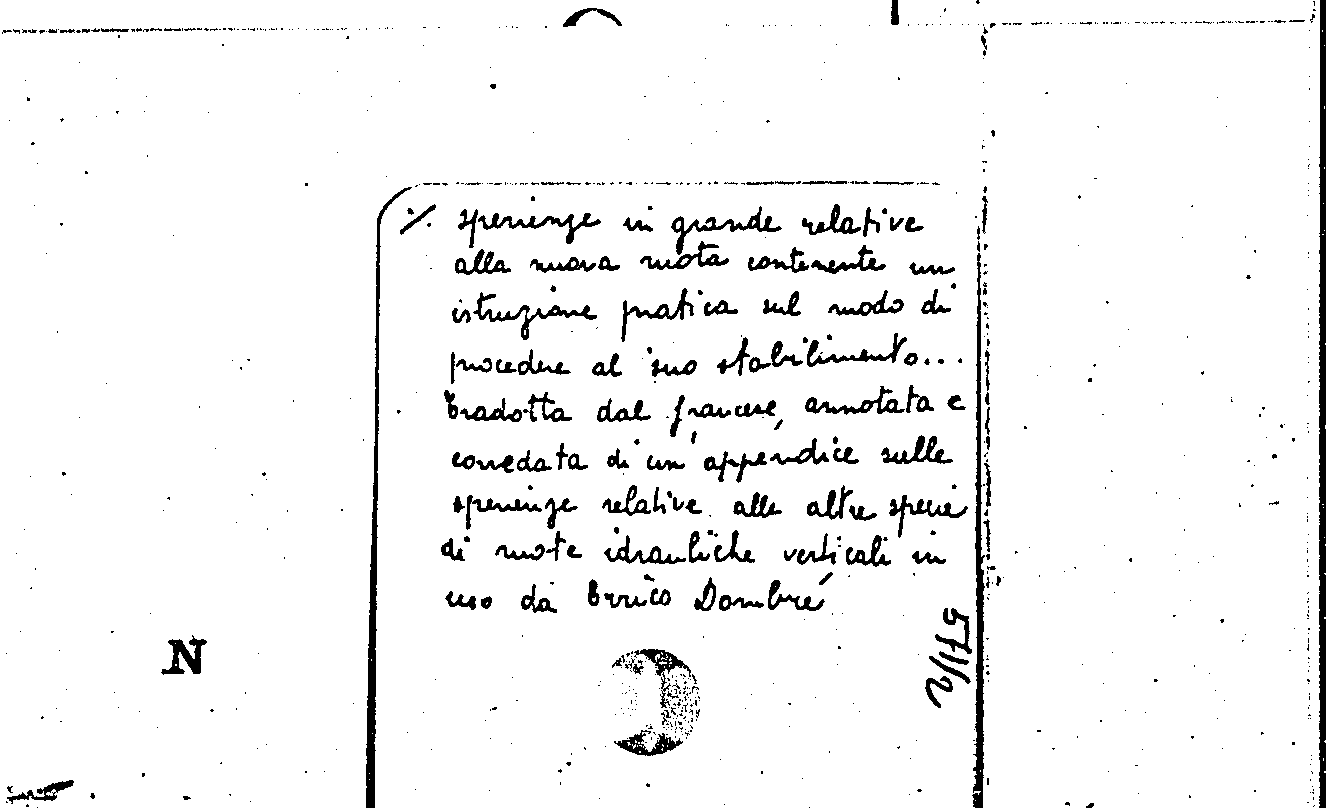 ./. sperienze in grande relative
alla nuova ruota contenente un
istruzione pratica sul modo di
procedere al suo stabilimento...
tradotta dal francese, annotata e
corredata di un'appendice sulle
sperienze relative alle altre specie
di ruote idrauliche verticali in
uso da Errico Dombré
571/2
N